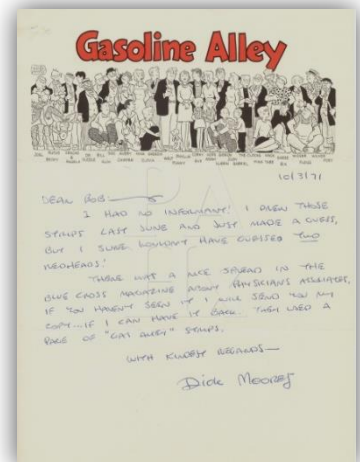 Gasoline Alley
10/3/71
DEAR BOB—
I HAD NO INFORMANT! I DREW THOSE
STRIPS LAST JUNE AND JUST MADE A GUESS,
BUT I SURE WOULDN'T HAVE GUESSED TWO
REDHEADS!
THERE WAS A NICE SPREAD IN THE
BLUE CROSS MAGAZINE ABOUT PHYSICIANS ASSOCIATES,
IF YOU HAVEN'T SEEN IT I WILL SEND YOU MY
COPY... IF I CAN HAVE IT BACK. THEY USED A
PAGE OF "GAS ALLEY" STRIPS.
WITH KINDEST REGARDS—
Dick Moores